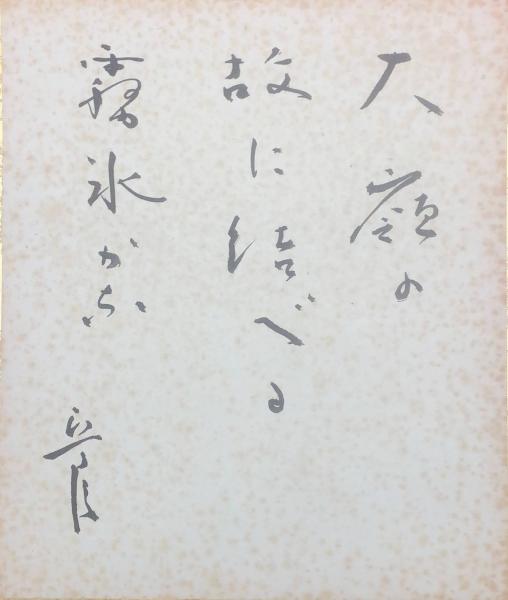 大嶺の
故に結べる
霧氷かな